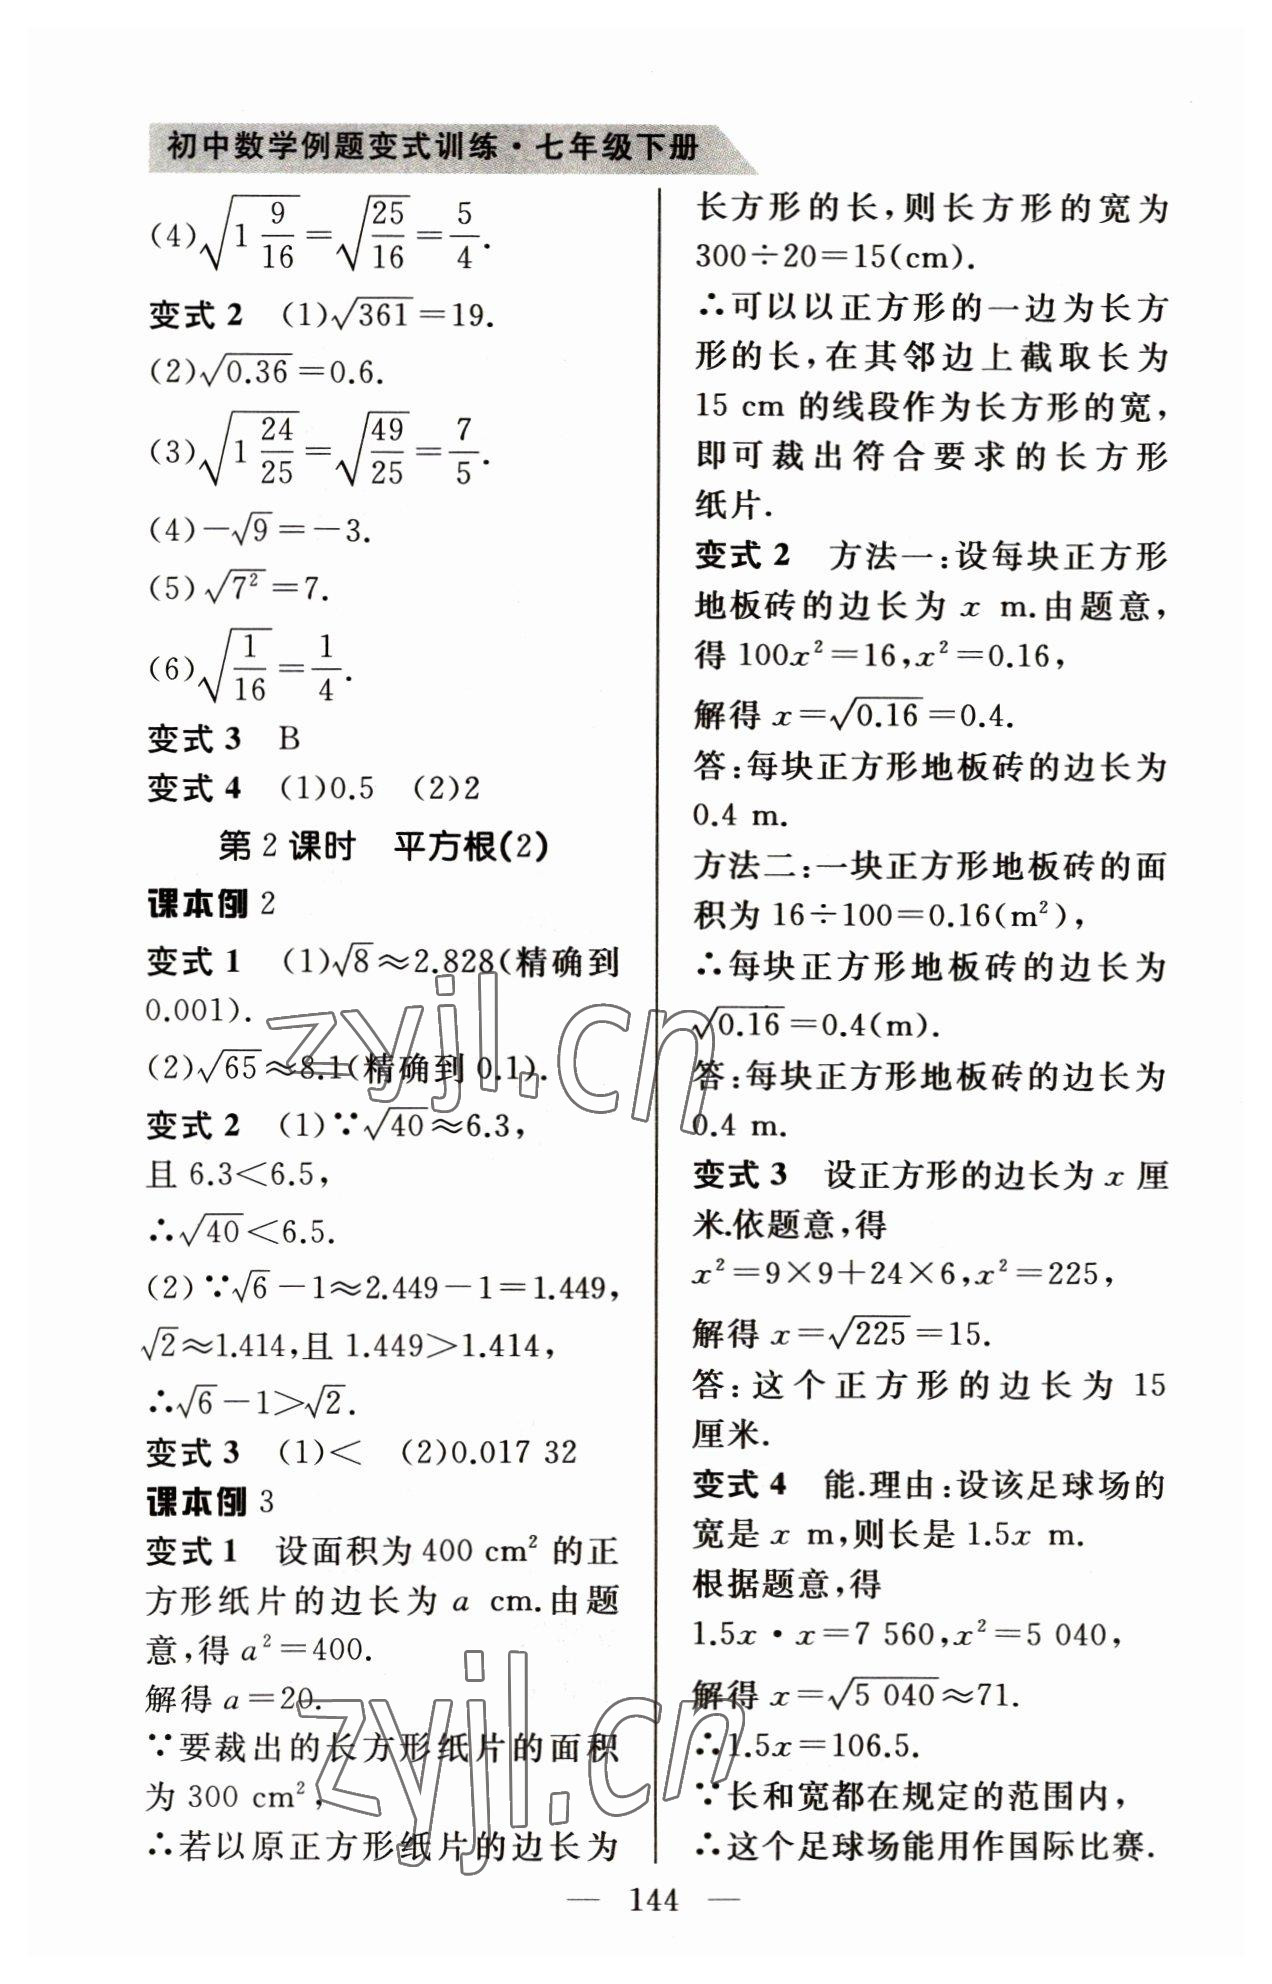 初中数学例题变式训练·七年级下册
(4)√(1 9/16)=√(25/16)=5/4.
变式 2 (1)√361=19.
(2)√0.36=0.6.
(3)√(1 24/25)=√(49/25)=7/5.
(4)-√9=-3.
(5)√7²=7.
(6)√(1/16)=1/4.
变式 3 B
变式 4 (1)0.5 (2)2
第 2 课时 平方根(2)
课本例 2
变式 1 (1)√8≈2.828(精确到
0.001).
(2)√65≈8.1(精确到 0.1).
变式 2 (1)∵√40≈6.3,
且 6.3<6.5,
∴√40<6.5.
(2)∵√6-1≈2.449-1=1.449,
√2≈1.414,且 1.449>1.414,
∴√6-1>√2.
变式 3 (1)< (2)0.017 32
课本例 3
变式 1 设面积为 400 cm² 的正
方形纸片的边长为 a cm.由题
意,得 a²=400.
解得 a=20.
∵要裁出的长方形纸片的面积
为 300 cm²,
∴若以原正方形纸片的边长为
长方形的长,则长方形的宽为
300÷20=15(cm).
∴可以以正方形的一边为长方
形的长,在其邻边上截取长为
15 cm 的线段作为长方形的宽,
即可裁出符合要求的长方形
纸片.
变式 2 方法一:设每块正方形
地板砖的边长为 x m.由题意,
得 100x²=16,x²=0.16,
解得 x=√0.16=0.4.
答:每块正方形地板砖的边长为
0.4 m.
方法二:一块正方形地板砖的面
积为 16÷100=0.16(m²),
∴每块正方形地板砖的边长为
√0.16=0.4(m).
答:每块正方形地板砖的边长为
0.4 m.
变式 3 设正方形的边长为 x 厘
米.依题意,得
x²=9×9+24×6,x²=225,
解得 x=√225=15.
答:这个正方形的边长为 15
厘米.
变式 4 能.理由:设该足球场的
宽是 x m,则长是 1.5x m.
根据题意,得
1.5x·x=7 560,x²=5 040,
解得 x=√5 040≈71.
∴1.5x=106.5.
∵长和宽都在规定的范围内,
∴这个足球场能用作国际比赛.
— 144 —
zyjl.cn
zyjl.cn